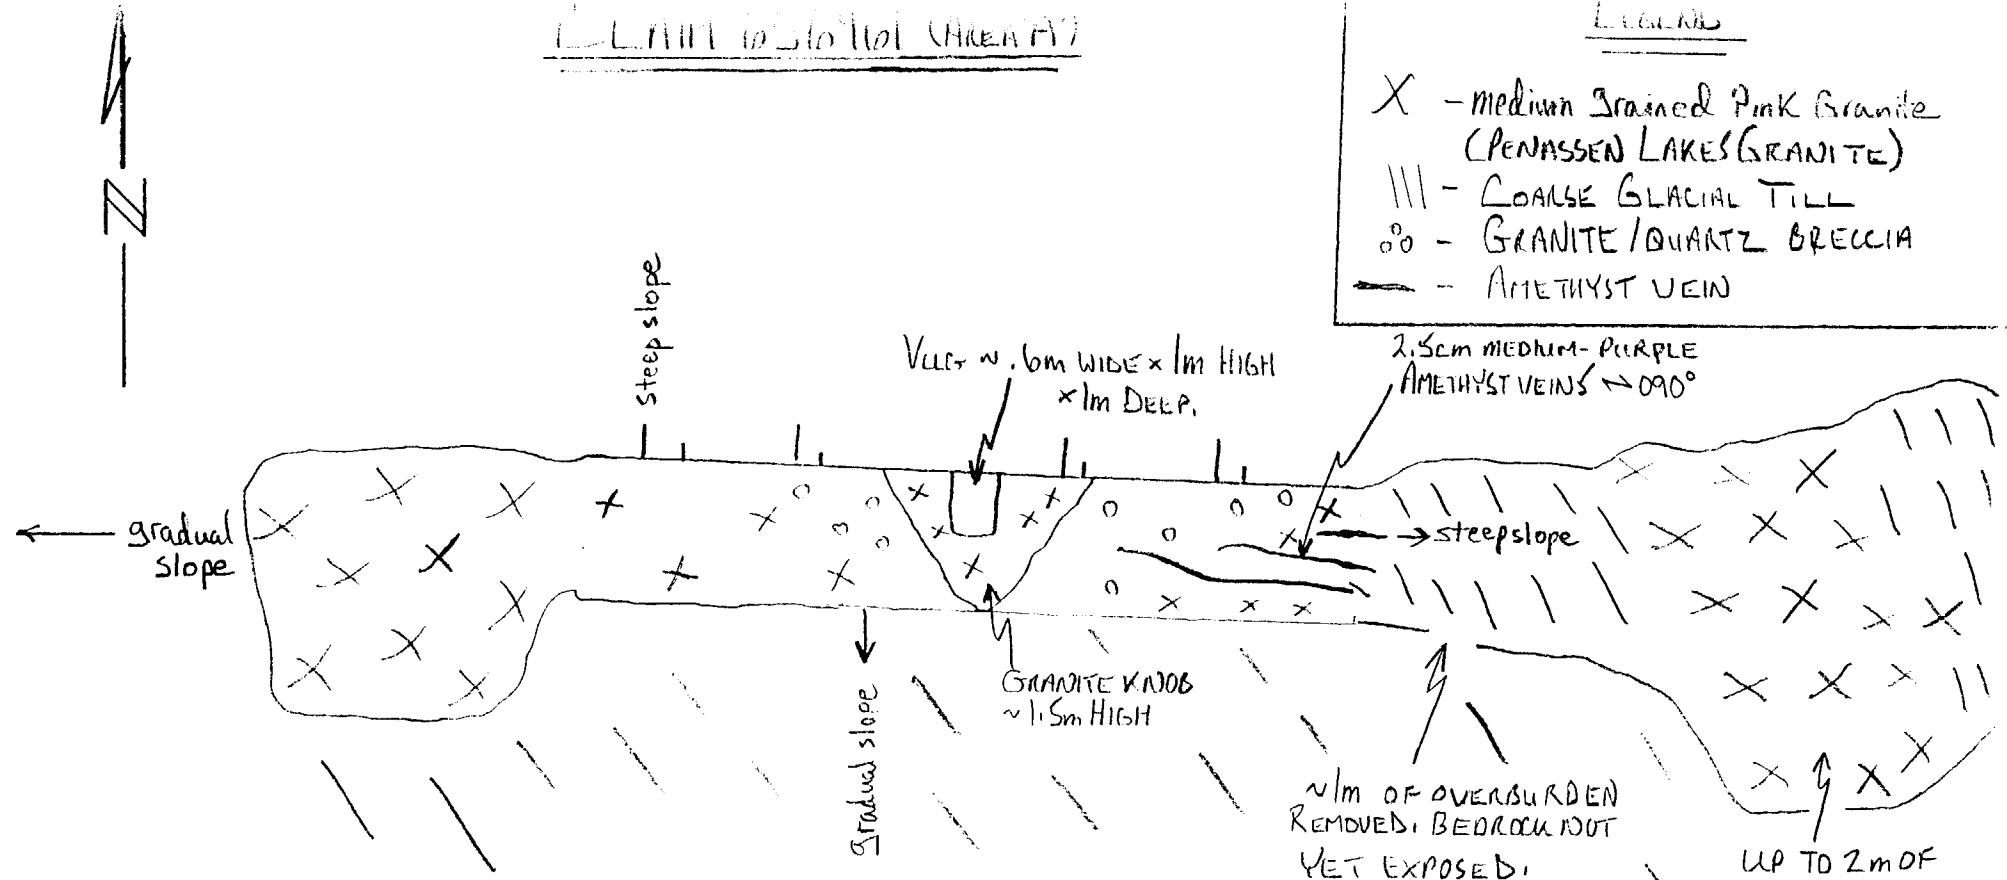 (AREA A)
LEGEND
X - medium grained Pink Granite
(PENASSEN LAKES GRANITE)
- COARSE GLACIAL TILL
- GRANITE/QUARTZ BRECCIA
- AMETHYST VEIN
N
steep slope
VUG ~ .6m WIDE x 1m HIGH
x 1m DEEP.
2.5cm MEDIUM-PURPLE
AMETHYST VEINS ~ 090°
gradual
slope
steep slope
GRANITE KNOB
~1.5m HIGH
gradual slope
~1m OF OVERBURDEN
REMOVED. BEDROCK NOT
YET EXPOSED.
UP TO 2m OF